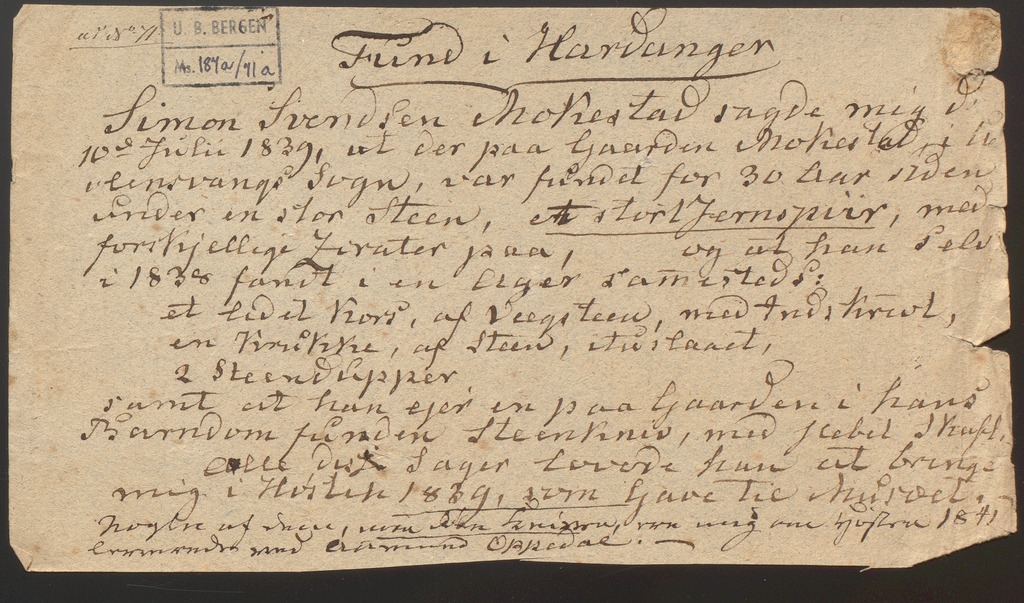 U. B. BERGEN
Ms. 187a/71a
Fund i Hardanger
Simon Svendsen Mokestad sagde mig d
10de Julii 1839, at der paa Gaarden Mokestad, i Ul
lensvangs Sogn, var fundet for 30 Aar siden
under en stor Steen, et stort Jernspiir, med
forskjellige Zirater paa, og at han selv
i 1838 fandt i en Ager sammesteds:
et lidet Kors, af Veegsteen, med Indskrivt,
en Krukke, af Steen, ituslaaet,
2 Steendupper
samt at han ejer en paa Gaarden i hans
Barndom funden Steenkniv, med Skaft.
Alle disse Sager lovede han at bringe
mig i Høsten 1839, som Gave til Museet.
Nogle af dem, 1841
leverede ved Aamund Oppedal. —